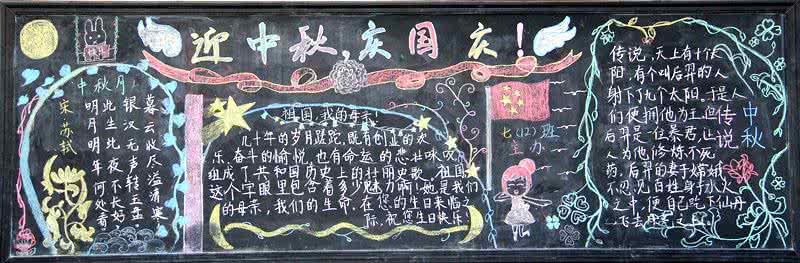 迎中秋,庆国庆!
快乐
中秋月
宋 苏轼
暮云收尽溢清寒
银汉无声转玉盘
此生此夜不长好
明月明年何处看
祖国,我的母亲!
几十年的岁月蹉跎,既有创业的欢
乐、奋斗的愉悦,也有命运的悲壮咏叹
组成了共和国历史上的壮丽史歌。祖国
这个字眼里包含着多少魅力啊!她是我们
的母亲,我们的生命,在您的生日来临之
际,祝您生日快乐
七(12)班
主办
中秋传说
传说,天上有十个太
阳,有个叫后羿的人
射下了九个太阳,于是人
们便拥他为王,但
后羿是一位暴君,让
人为他修炼不死
药,后羿的妻子嫦娥
不忍见百姓身于水火
之中,便自己吃下仙丹